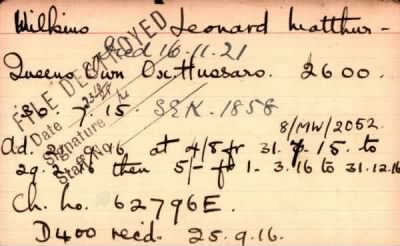 Wilkins Leonard Matthur -
died 16.11.21
Queens Own Ox: Hussars. 2600.
FILE DESTROYED
Date
Signature
Staff No.
7.15. SEK. 1858
8/MW/2052.
Ad. 2.9.16 at 4/8 fr 31.7.15. to
29.2.16 then 5/- fr 1-3.16 to 31.12.16
Ch. no. 62796E.
D400 recd. 25.9.16.